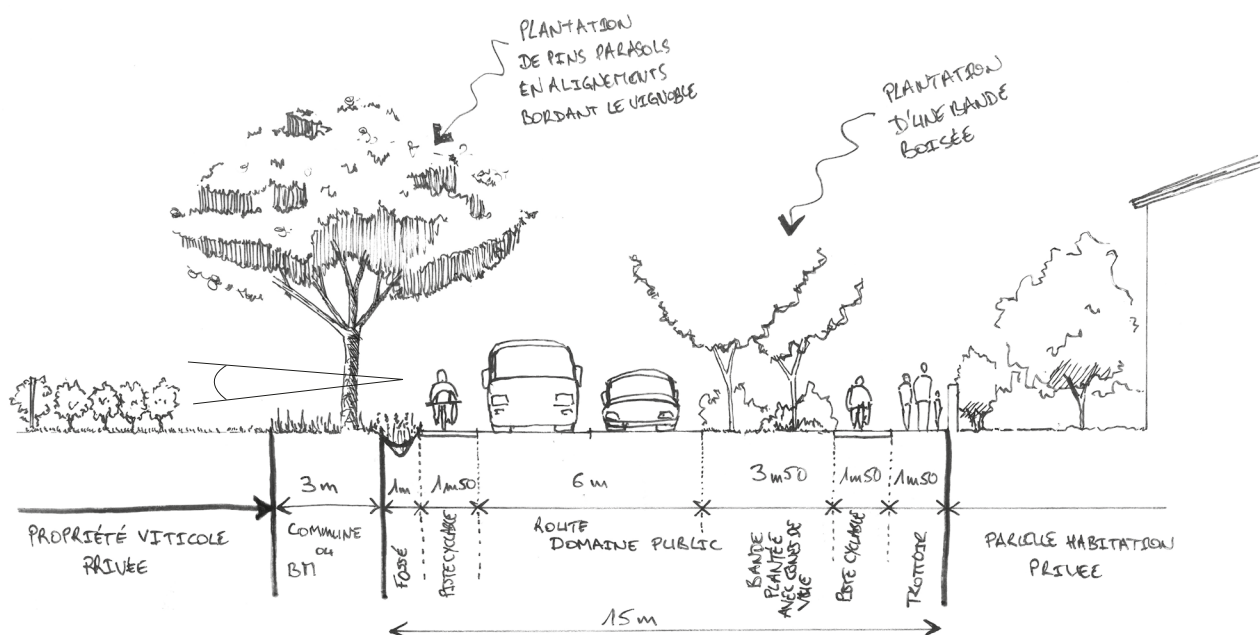 PLANTATION
DE PINS PARASOLS
EN ALIGNEMENTS
BORDANT LE VIGNOBLE
PLANTATION
D'UNE BANDE
BOISÉE
3m
1m
1m50
6m
3m50
1m50
1m50
PROPRIÉTÉ VITICOLE
PRIVÉE
COMMUNE
OU
BM
FOSSÉ
PISTE CYCLABLE
ROUTE
DOMAINE PUBLIC
BANDE
PLANTÉE
AVEC
VOIE
PISTE CYCLABLE
TROTTOIR
PARCELLE HABITATION
PRIVEE
15m